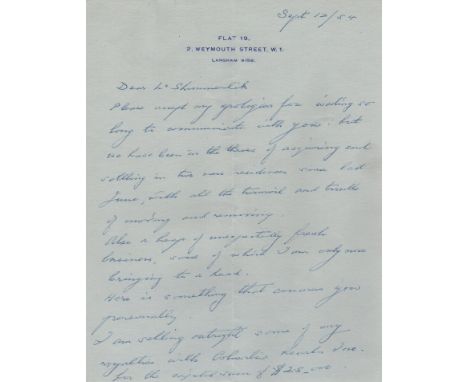 Sept 12/54
FLAT 19,
2, WEYMOUTH STREET, W.1.
LANGHAM 9108.
Dear
Please accept my apologies for waiting so
long to communicate with you. but
we have been in the throes of acquiring and
settling in two new residences since last
June, with all the turmoil and
of moving and removing.
Also a heap of unexpectedly fresh
business, some of which I am only now
bringing to a head.
Here is something that concerns you
personally.
I am selling outright some of my
royalties with Columbia Records Inc.
for the sum of $25.000.